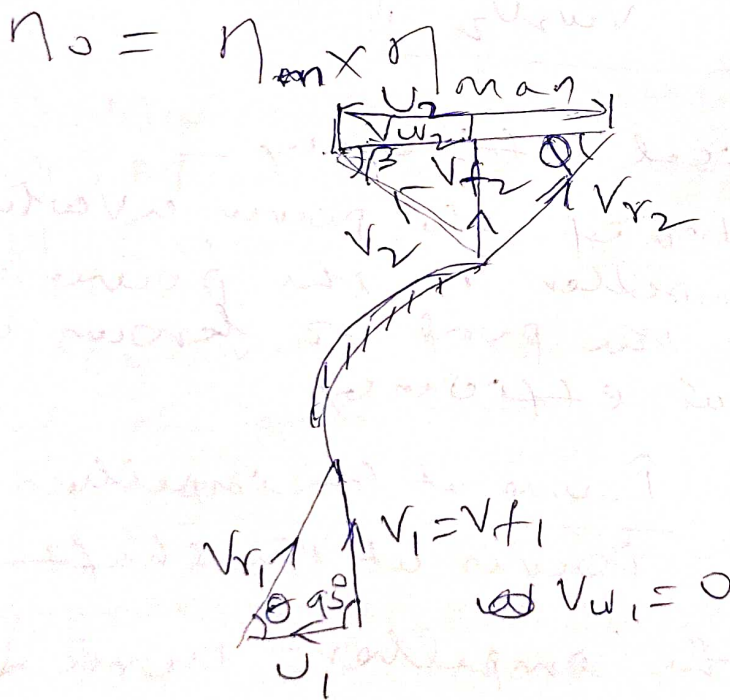 η₀ = ηₘₙ × η man
U₂
Vw₂
β
Vf₂
Φ
Vr₂
V₂
Vr₁
V₁ = Vf₁
θ
90°
Vw₁ = 0
U₁